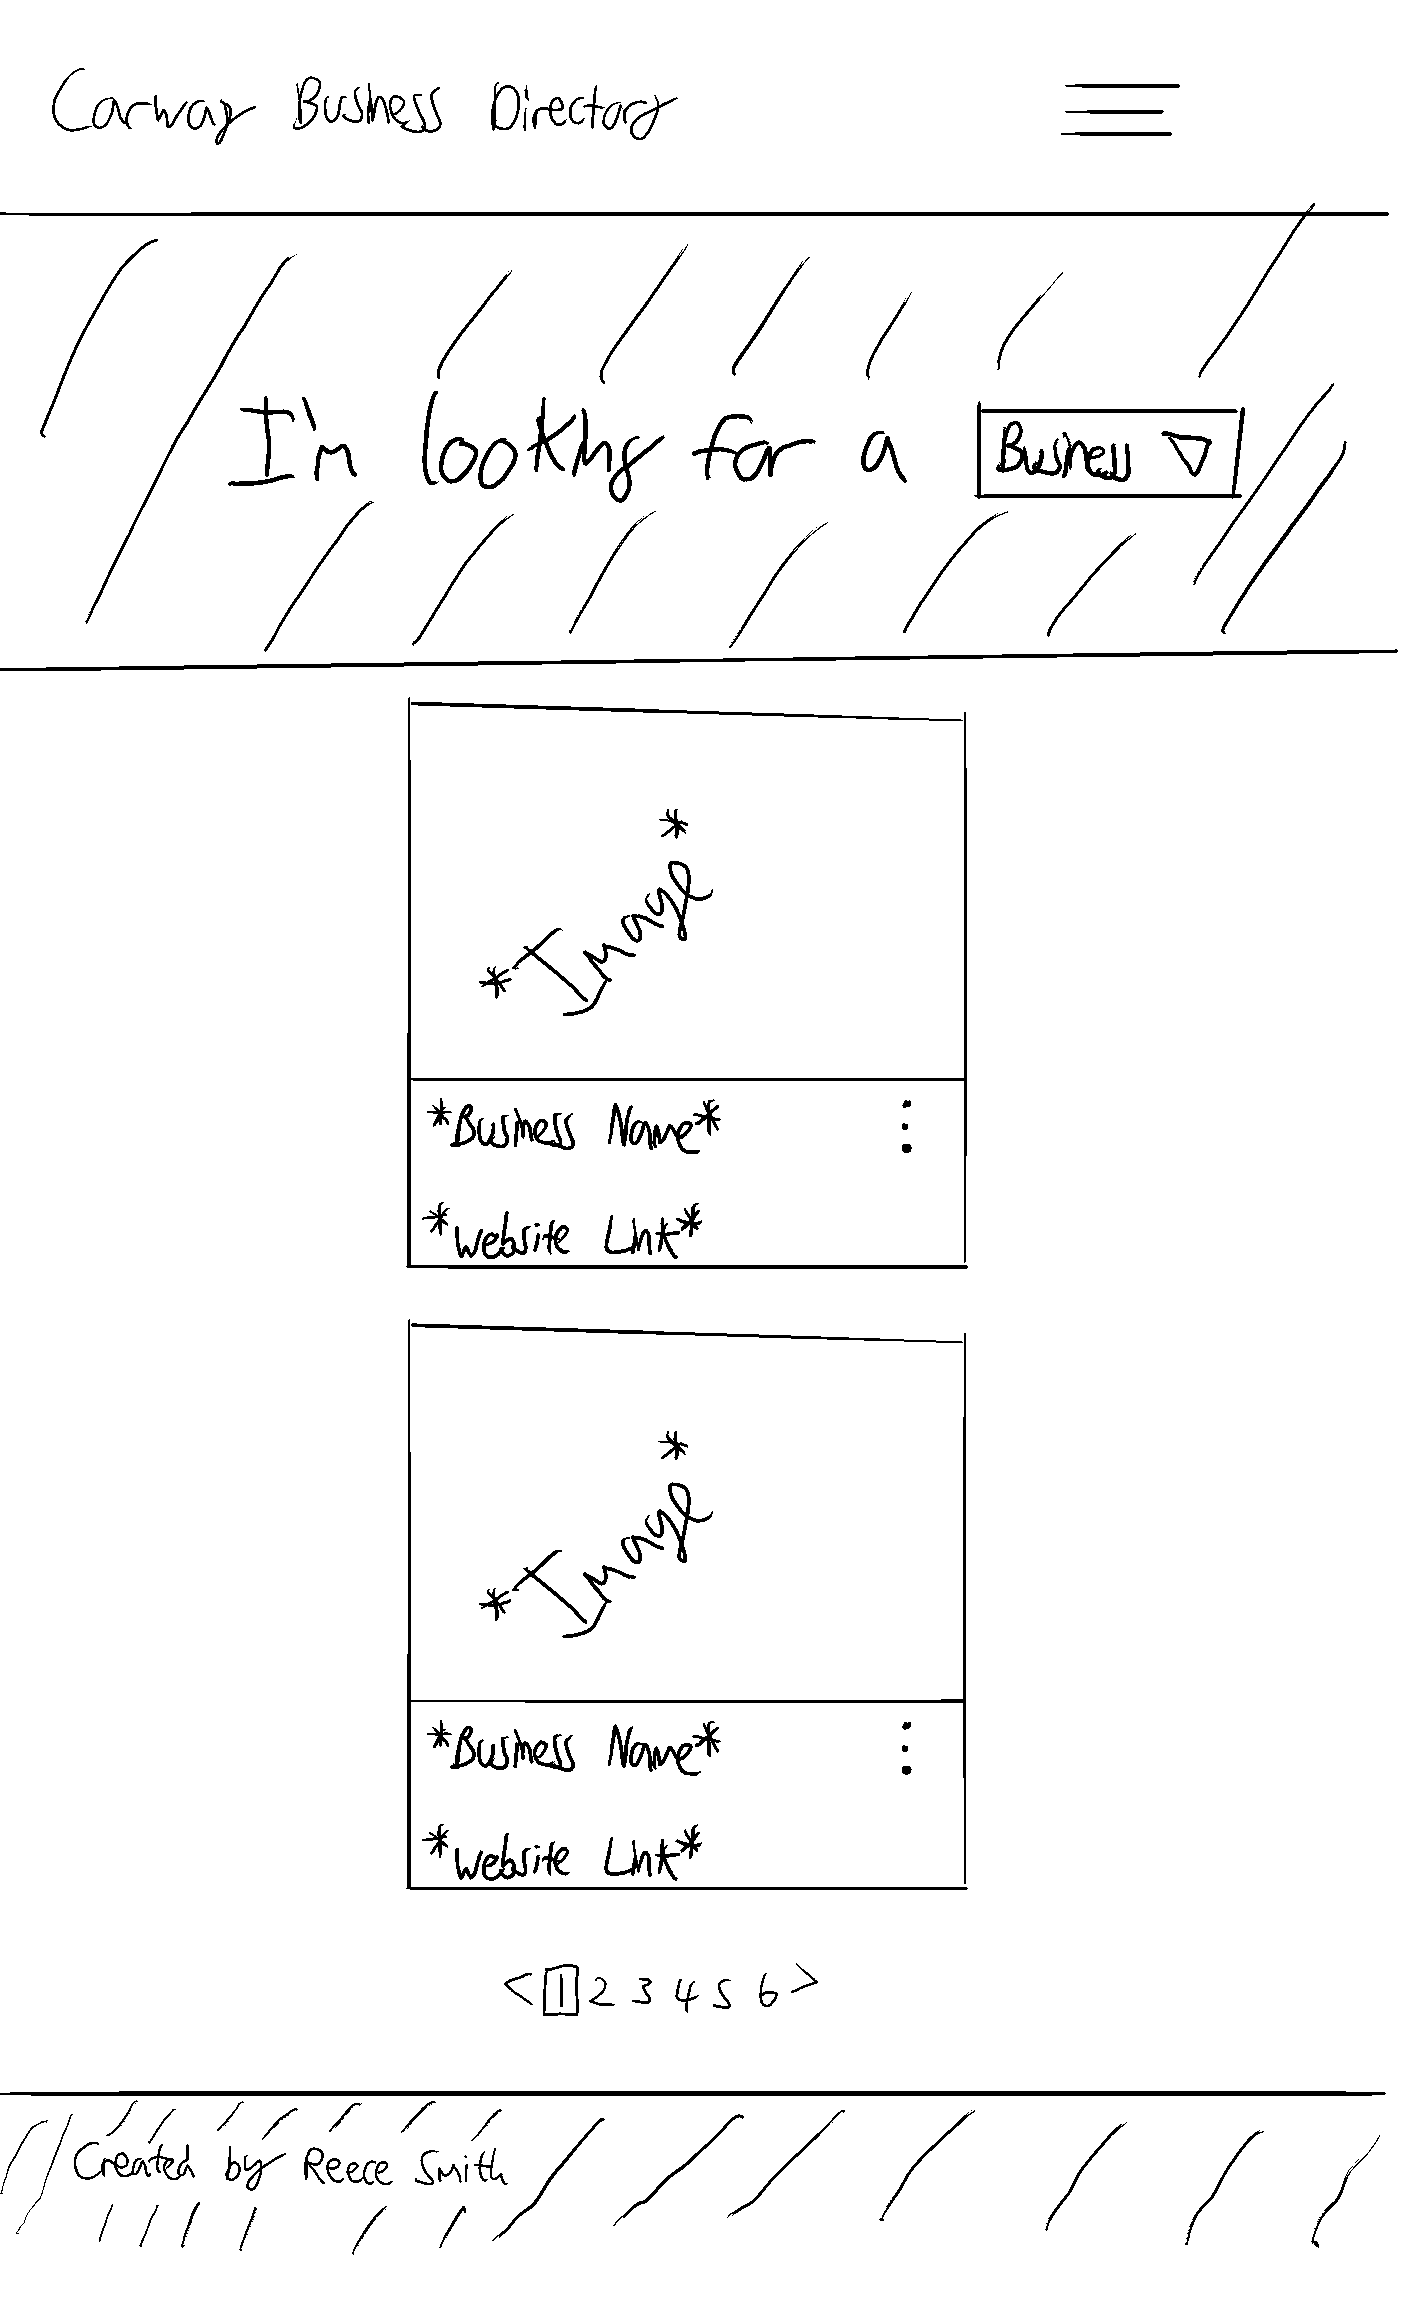 Carway Business Directory
I'm looking for a Business
*Image*
*Business Name*
*Website Link*
*Image*
*Business Name*
*Website Link*
< 1 2 3 4 5 6 >
Created by Reece Smith